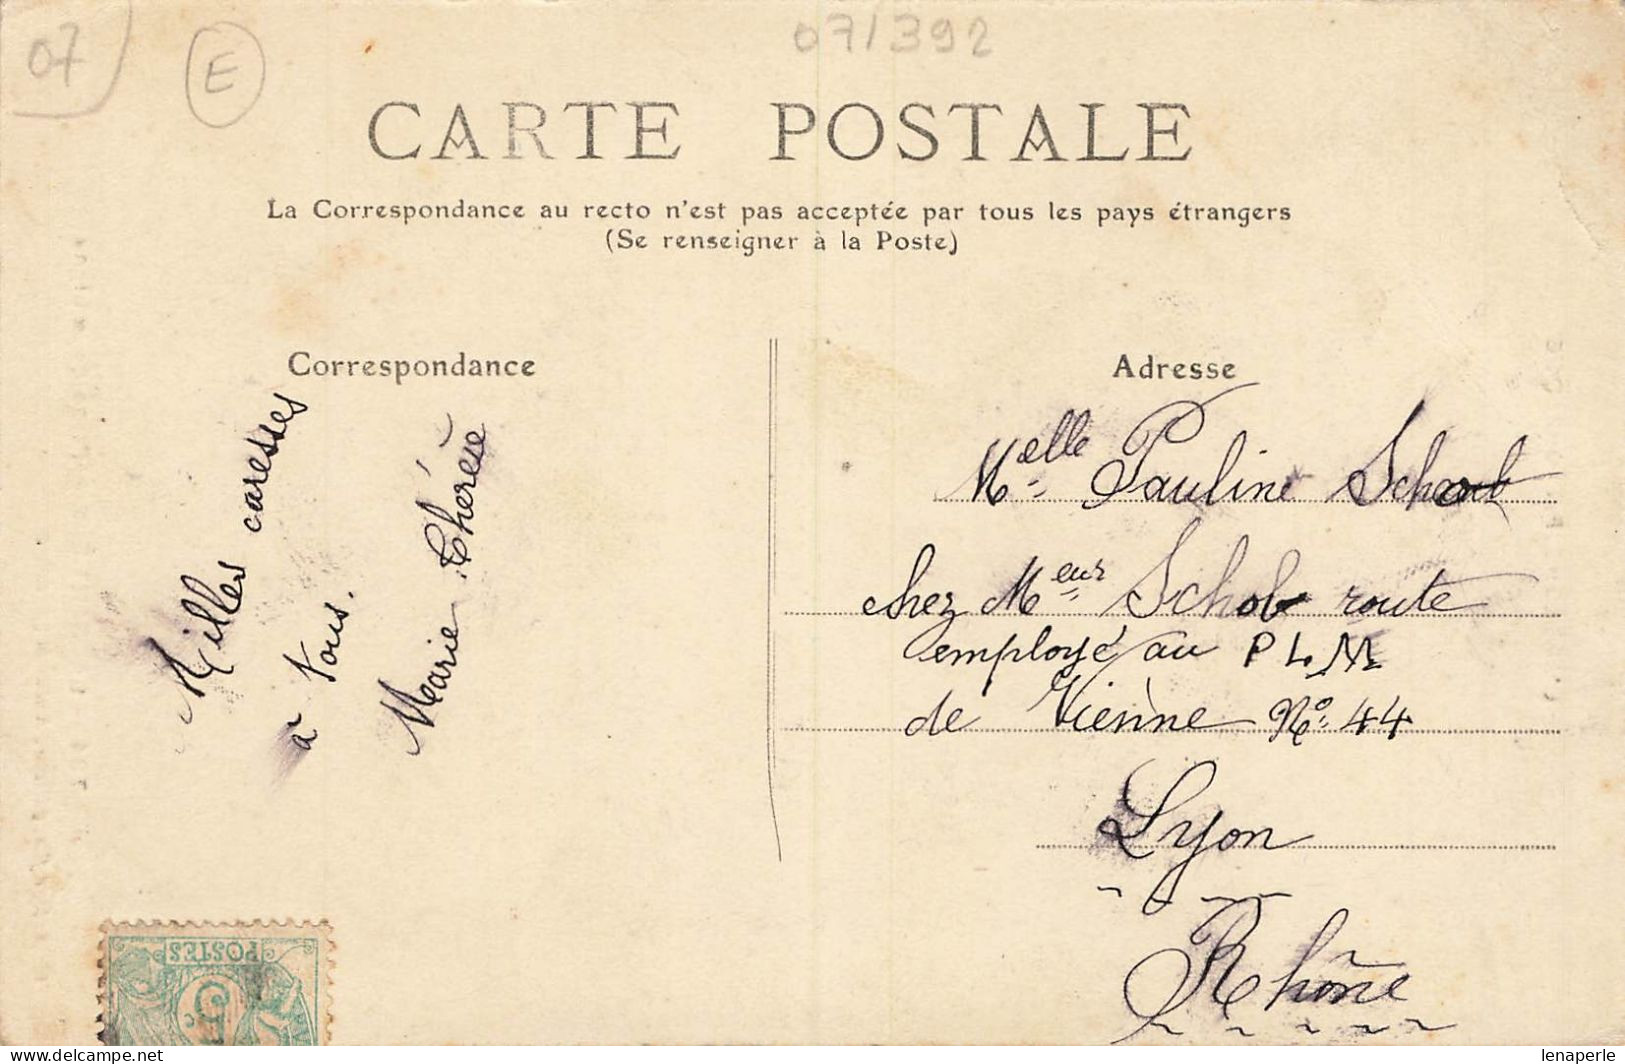 07
E
07/392
CARTE POSTALE
La Correspondance au recto n'est pas acceptée par tous les pays étrangers
(Se renseigner à la Poste)
Correspondance
Milles caresses
à Vous.
Marie Thérèse
Adresse
Melle Pauline
chez Meur Schob route
employé au P L M
de Vienne No 44
Lyon
Rhône
POSTES
5c
lenaperle